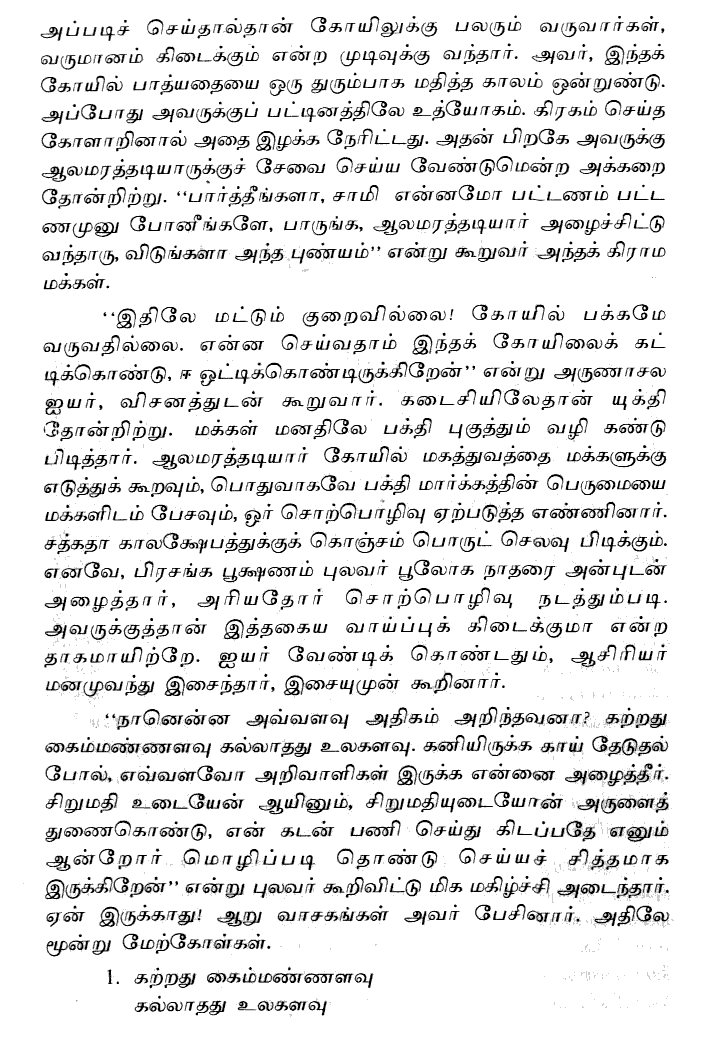 அப்படிச் செய்தால்தான் கோயிலுக்கு பலரும் வருவார்கள்,
வருமானம் கிடைக்கும் என்ற முடிவுக்கு வந்தார். அவர், இந்தக்
கோயில் பாத்யதையை ஒரு துரும்பாக மதித்த காலம் ஒன்றுண்டு.
அப்போது அவருக்குப் பட்டினத்திலே உத்யோகம். கிரகம் செய்த
கோளாறினால் அதை இழக்க நேரிட்டது. அதன் பிறகே அவருக்கு
ஆலமரத்தடியாருக்குச் சேவை செய்ய வேண்டுமென்ற அக்கறை
தோன்றிற்று. ‘‘பார்த்தீங்களா, சாமி என்னமோ பட்டணம் பட்ட
ணமுனு போனீங்களே, பாருங்க, ஆலமரத்தடியார் அழைச்சிட்டு
வந்தாரு, விடுங்களா அந்த புண்யம்’’ என்று கூறுவர் அந்தக் கிராம
மக்கள்.
‘‘இதிலே மட்டும் குறைவில்லை! கோயில் பக்கமே
வருவதில்லை. என்ன செய்வதாம் இந்தக் கோயிலைக் கட்
டிக்கொண்டு, ஈ ஒட்டிக்கொண்டிருக்கிறேன்’’ என்று அருணாசல
ஐயர், விசனத்துடன் கூறுவார். கடைசியிலேதான் யுக்தி
தோன்றிற்று. மக்கள் மனதிலே பக்தி புகுத்தும் வழி கண்டு
பிடித்தார். ஆலமரத்தடியார் கோயில் மகத்துவத்தை மக்களுக்கு
எடுத்துக் கூறவும், பொதுவாகவே பக்தி மார்க்கத்தின் பெருமையை
மக்களிடம் பேசவும், ஓர் சொற்பொழிவு ஏற்படுத்த எண்ணினார்.
சத்கதா காலக்ஷேபத்துக்குக் கொஞ்சம் பொருட் செலவு பிடிக்கும்.
எனவே, பிரசங்க பூக்ஷணம் புலவர் பூலோக நாதரை அன்புடன்
அழைத்தார், அரியதோர் சொற்பொழிவு நடத்தும்படி.
அவருக்குத்தான் இத்தகைய வாய்ப்புக் கிடைக்குமா என்ற
தாகமாயிற்றே. ஐயர் வேண்டிக் கொண்டதும், ஆசிரியர்
மனமுவந்து இசைந்தார், இசையுமுன் கூறினார்.
‘‘நானென்ன அவ்வளவு அதிகம் அறிந்தவனா? கற்றது
கைம்மண்ணளவு கல்லாதது உலகளவு. கனியிருக்க காய் தேடுதல்
போல், எவ்வளவோ அறிவாளிகள் இருக்க என்னை அழைத்தீர்.
சிறுமதி உடையேன் ஆயினும், சிறுமதியுடையோன் அருளைத்
துணைகொண்டு, என் கடன் பணி செய்து கிடப்பதே எனும்
ஆன்றோர் மொழிப்படி தொண்டு செய்யச் சித்தமாக
இருக்கிறேன்’’ என்று புலவர் கூறிவிட்டு மிக மகிழ்ச்சி அடைந்தார்.
ஏன் இருக்காது! ஆறு வாசகங்கள் அவர் பேசினார். அதிலே
மூன்று மேற்கோள்கள்.
1. கற்றது கைம்மண்ணளவு
கல்லாதது உலகளவு